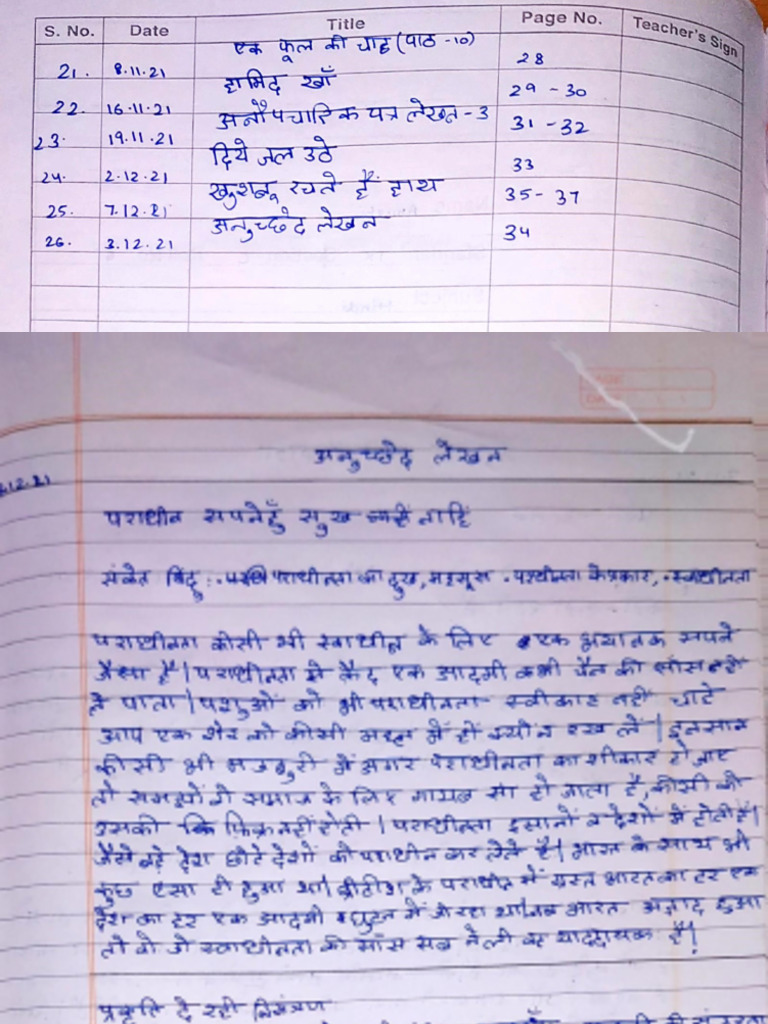 S. No. Date Title Page No. Teacher's Sign
21. 8.11.21 एक फूल की चाह (पाठ -10) 28
22. 16.11.21 हामिद खाँ 29 - 30
23. 19.11.21 अनौपचारिक पत्र लेखन - 3 31 - 32
24. 2.12.21 दिये जल उठे 33
25. 7.12.21 खुशबू रचते हैं हाथ 35 - 37
26. 3.12.21 अनुच्छेद लेखन 34
अनुच्छेद लेखन
.12.21
पराधीन सपनेहुँ सुख नाहिं
संकेत बिंदु :- पराधीनता का दुख, महसूस - पराधीनता के प्रकार, - स्वाधीनता
पराधीनता कीसी भी स्वाधीन के लिए एक भयानक सपने
जैसा है। पराधीनता में कैद एक आदमी कभी चैन की साँस नहीं
ले पाता। पशुओं को भी पराधीनता स्वीकार नहीं चाहे
आप एक शेर को कीसी महल में ही क्यों न रख लें। इनसान
कीसी भी मजबुरी में अगर पराधीनता का शीकार हो जाए
तो समझो वो समाज के लिए गायब सा हो जाता है, कीसी को
उसकी फ़िक्र नहीं होती। पराधीनता इसानों व देशों में होती है।
जैसे बड़े देश छोटे देशों को पराधीन कर लेते है। भारत के साथ भी
कुछ एसा ही हुआ था। ब्रीटीश के पराधीन में ग्रस्त भारत का हर एक
देश का हर एक आदमी घुटन में जी रहा था। जब भारत आज़ाद हुआ
तो वो जो स्वाधीनता की साँस सब ने ली वह यादगायक है।
प्रकृति दे रही निमंत्रण